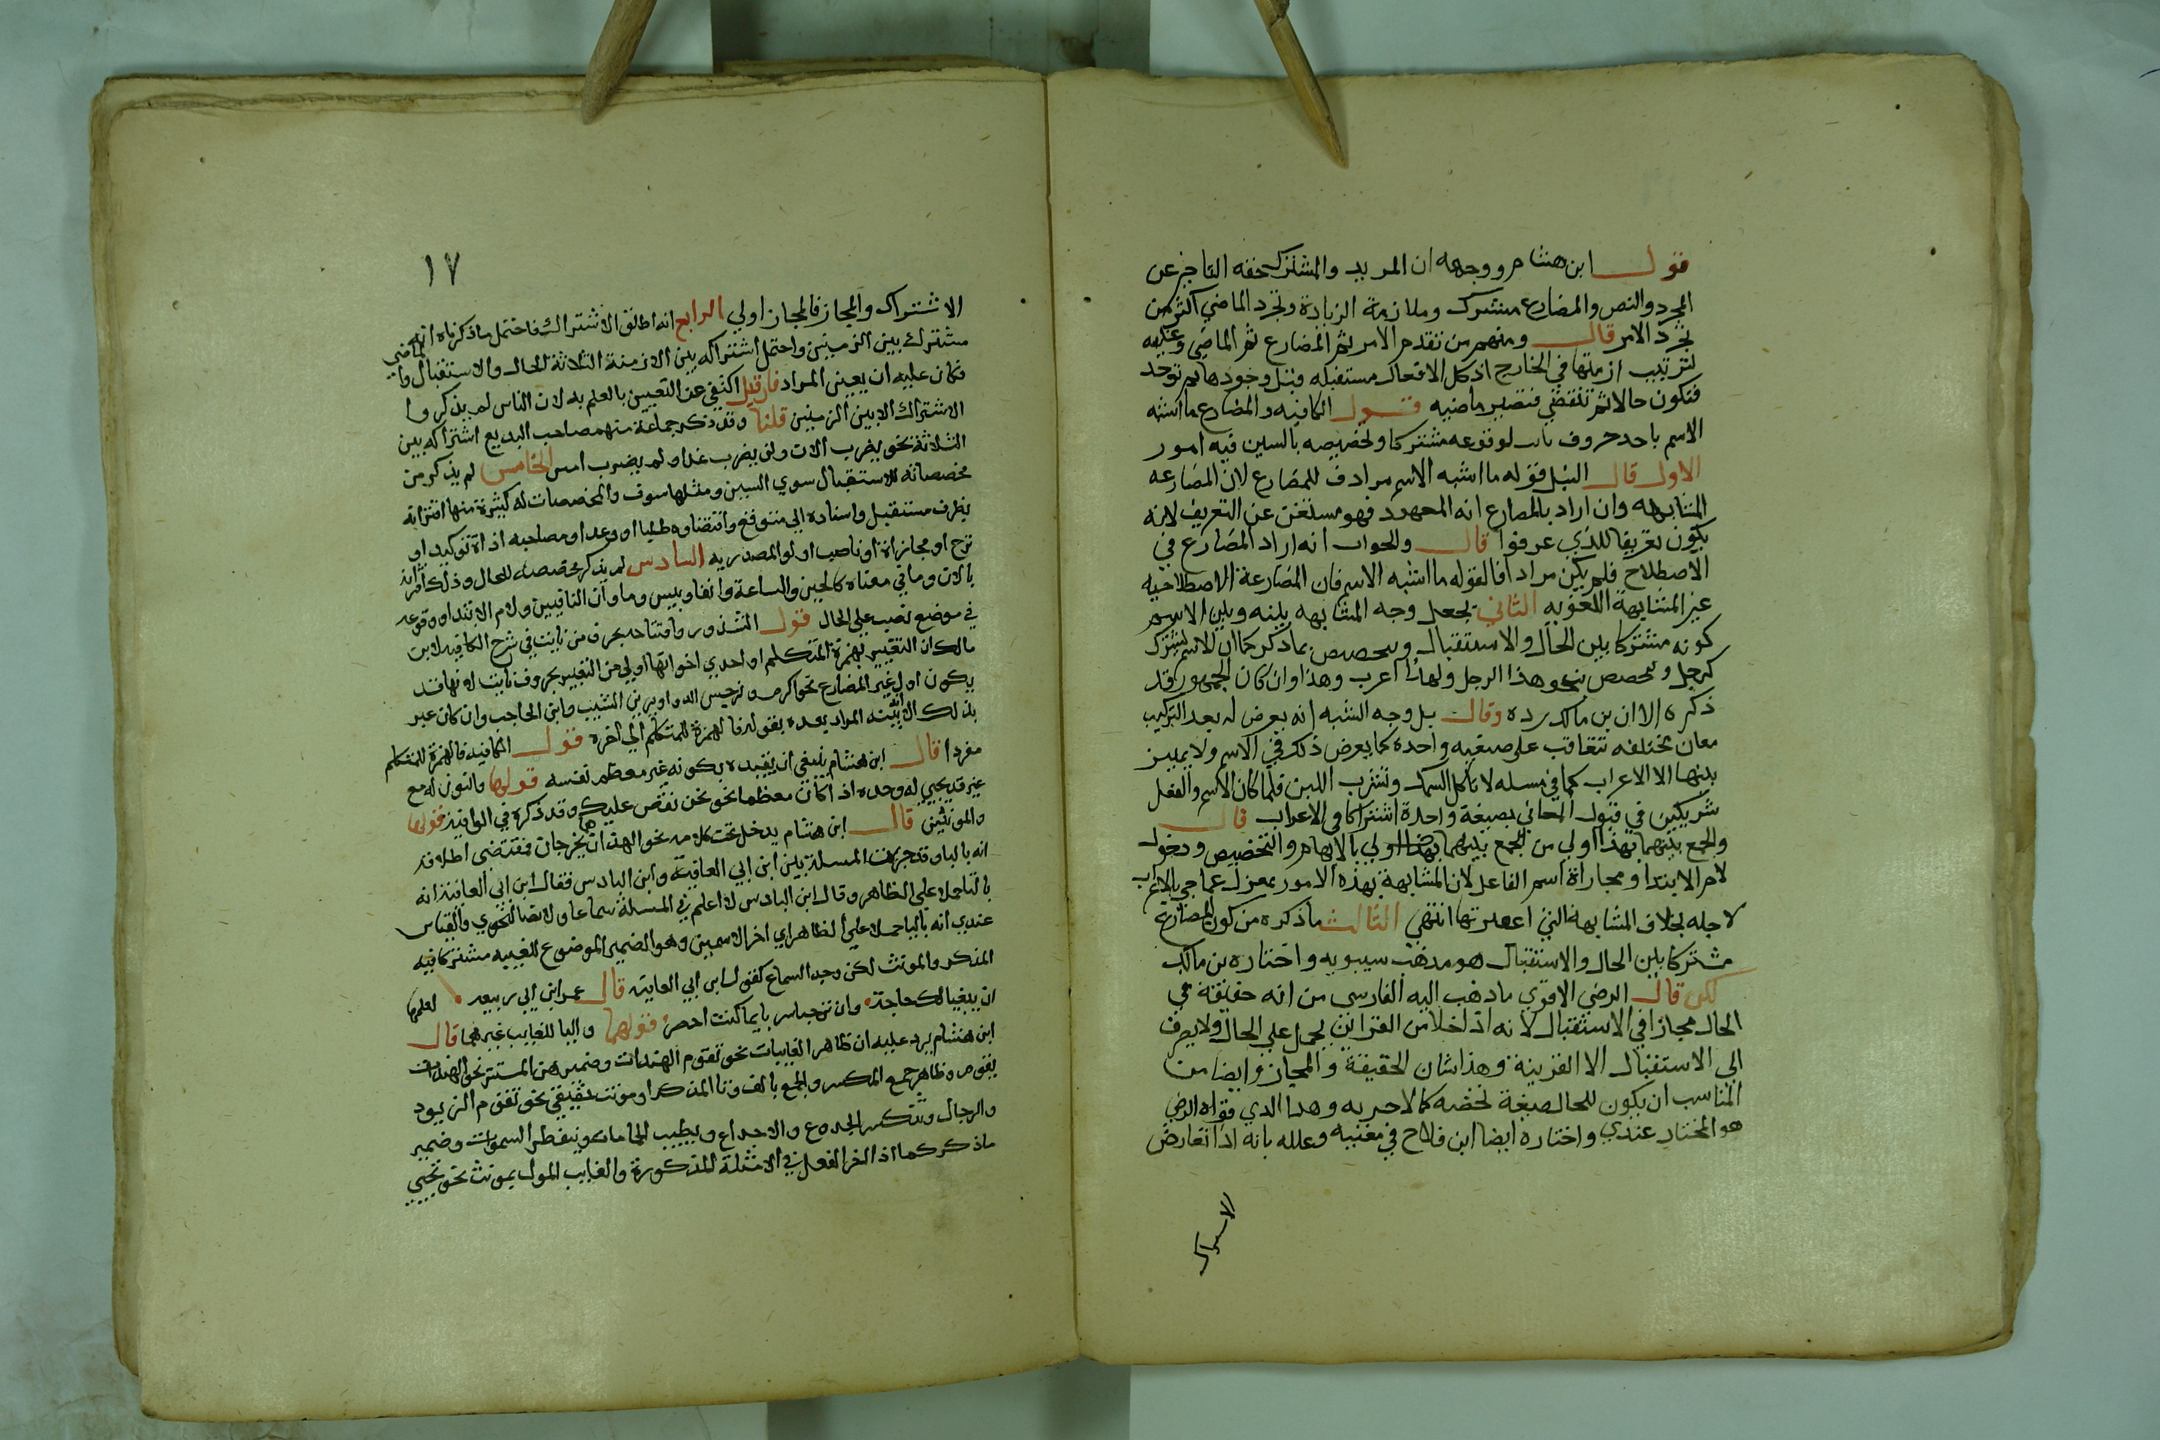 قول ابن هشام ووجهه ان المزيد والمشترك حقه التاخر عن
المجرد والنص والمضارع مشترك وملازمة الزيادة وتجرد الماضي اكثر من
تجرد الامر قال ومنهم من تقدم الامر ثم المضارع ثم الماضي وعليه
لترتيب ازمنتها في الخارج اذ كل الافعال مستقبله قبل وجودها ثم توجد
فتكون حالا ثم تنقضي فتصير ماضيه قول الكافيه والمضارع ما اشبه
الاسم باحد حروف نايت لوقوعه مشتركا وتخصيصه بالسين فيه امور
الاول قال النيل قوله ما اشبه الاسم مرادف للمضارع لان المضارعه
المشابهه وان اراد بالمضارع انه المعهود فهو مستغن عن التعريف لانه
يكون تعريفا للذي عرفوا قال والجواب انه اراد المضارع في
الاصطلاح فلم يكن مرادفا لقوله ما اشبه الاسم فان المضارعة الاصطلاحيه
غير المشابهة اللغويه الثاني جعل وجه المشابهه بينه وبين الاسم
كونه مشتركا بين الحال والاستقبال وتخصيص بما ذكر كما ان الاسم يشترك
كرجل وتخصص نحو هذا الرجل ولهذا اعرب وهذا وان كان الجمهور قد
ذكره الا ان بن مالك رده وقال بل وجه الشبه انه يعرض له بعد التركيب
معان مختلفه تتعاقب على صيغه واحدة كما يعرض ذلك في الاسم ولا يميز
بينها الا الاعراب كما في مسله لا تاكل السمك وتشرب اللبن فلما كان الاسم والفعل
شريكين في قبول المعاني بصيغة واحدة اشتركا في الاعراب قال
والجمع بينهما بهذا اولي من الجمع بينهما بالابهام والتخصيص ودخول
لام الابتدا ومجاراة اسم الفاعل لان المشابهة بهذه الامور بمعزل عما جي بالاعراب
لاجله بخلاف المشابهة التي اعتبرتها انتهي الثالث ما ذكره من كون المضارع
مشتركا بين الحال والاستقبال هو مذهب سيبويه واختاره بن مالك
لكن قال الرضي الاقوي ما ذهب اليه الفارسي من انه حقيقة في
الحال مجازا في الاستقبال لانه اذا خلا من القراين يحمل علي الحال ولا يصرف
الي الاستقبال الا القرينة وهذا شان الحقيقة والمجاز وايضا من
المناسب ان يكون للحال صيغة تخصه كما لاخويه وهذا الذي قواه الرضي
هو المختار عندي واختاره ايضا ابن فلاح في مغنيه وعلله بانه اذا تعارض
الاشتراك
١٧
الاشتراك والمجاز فالمجاز اولي الرابع انه اطلق الاشتراك فاحتمل ما ذكرناه انه
مشترك بين الزمنين واحتمل اشتراكه بين الازمنة الثلاثة الحال والاستقبال والماضي
فكان عليه ان يعين المراد فان قيل اكتفي عن التعيين بالعلم به لان الناس لم يذكروا
الاشتراك الا بين الزمنين قلنا وقد ذكر جماعة منهم صاحب البديع اشتراكه بين
الثلاثة نحو يضرب الان ولن يضرب غدا ولم يضرب امس الخامس لم يذكر من
مخصصاته للاستقبال سوي السين ومثلها سوف والمخصصات له كثيرة منها اقترانه
بظرف مستقبل واسناده الي متوقع واقتضاوه طلبا او وعدا ومصاحبه اداة توكيد او
ترج او مجازاة او ناصب او لو المصدريه السادس لم يذكر مخصصه للحال وذلك اقترانه
بالان وما في معناه كالحين والساعة وانفا وبليس وما وان النافيين ولام الابتدا ووقوعه
في موضع نصب علي الحال قول الشذور وافتتاحه بحرف من نايت في شرح الكافيه لابن
مالك ان التعبير بهمزة المتكلم او احدي اخواتها اولي من التعبير بحروف نايت لانها قد
يكون اول غير المضارع نحو اكرم ونرجس الدوا ويرين الشيب وابن الحاجب وان كان عبر
بذلك الا انه المراد بعده بقوله فالهمزة للمتكلم الي اخره قول الكافيه فالهمزة للمتكلم
مفردا قال ابن هشام ينبغي ان يقيده بكونه غير معظم نفسه قولها والنون له مع
غير قد يجيي له وحده اذا كان معظما نحو نحن نقص عليك وقد ذكره في الوافيه قولها
والمونثين قال ابن هشام يدخل تحت كلامه نحو الهندان هما يخرجان فمقتضي اطلاقه
انه بالياء وقد جرت المسلة بين ابن ابي العافية وابن البادس فقال ابن ابي العافية انه
بالتا حملا علي الظاهر وقال ابن البادس لا اعلم في المسلة سماعا ولا نصا لنحوي والقياس
عندي انه باليا حملا علي الظاهر اي اخر الاسمين وهو الضمير الموضوع للغيبه مشتركا فيه
المذكر والمونث لكن وجد السماع كقول ابن ابي العافيه قال عمر ابن ابي ربيعه لعلهما
ان يبغيا لك حاجة وان ترحبا سربا بما كنت احصر قولها واليا للغايب غيرهما قال
ابن هشام يرد عليه ان ظاهر الغايبات نحو تقوم الهندات وضميرهن المستتر نحو الهندات
يقوم وظاهر جمع المكسر والجمع بالف وتا المذكر او مونث حقيقي نحو تقوم الزيود
والرجال وتنكسر الجذوع والاجذاع ويطيب الحمامات وينفطر السموات وضمير
ما ذكر كما اذا اخر الفعل في الامثلة المذكورة والغايب المول بمونث نحو تجيي